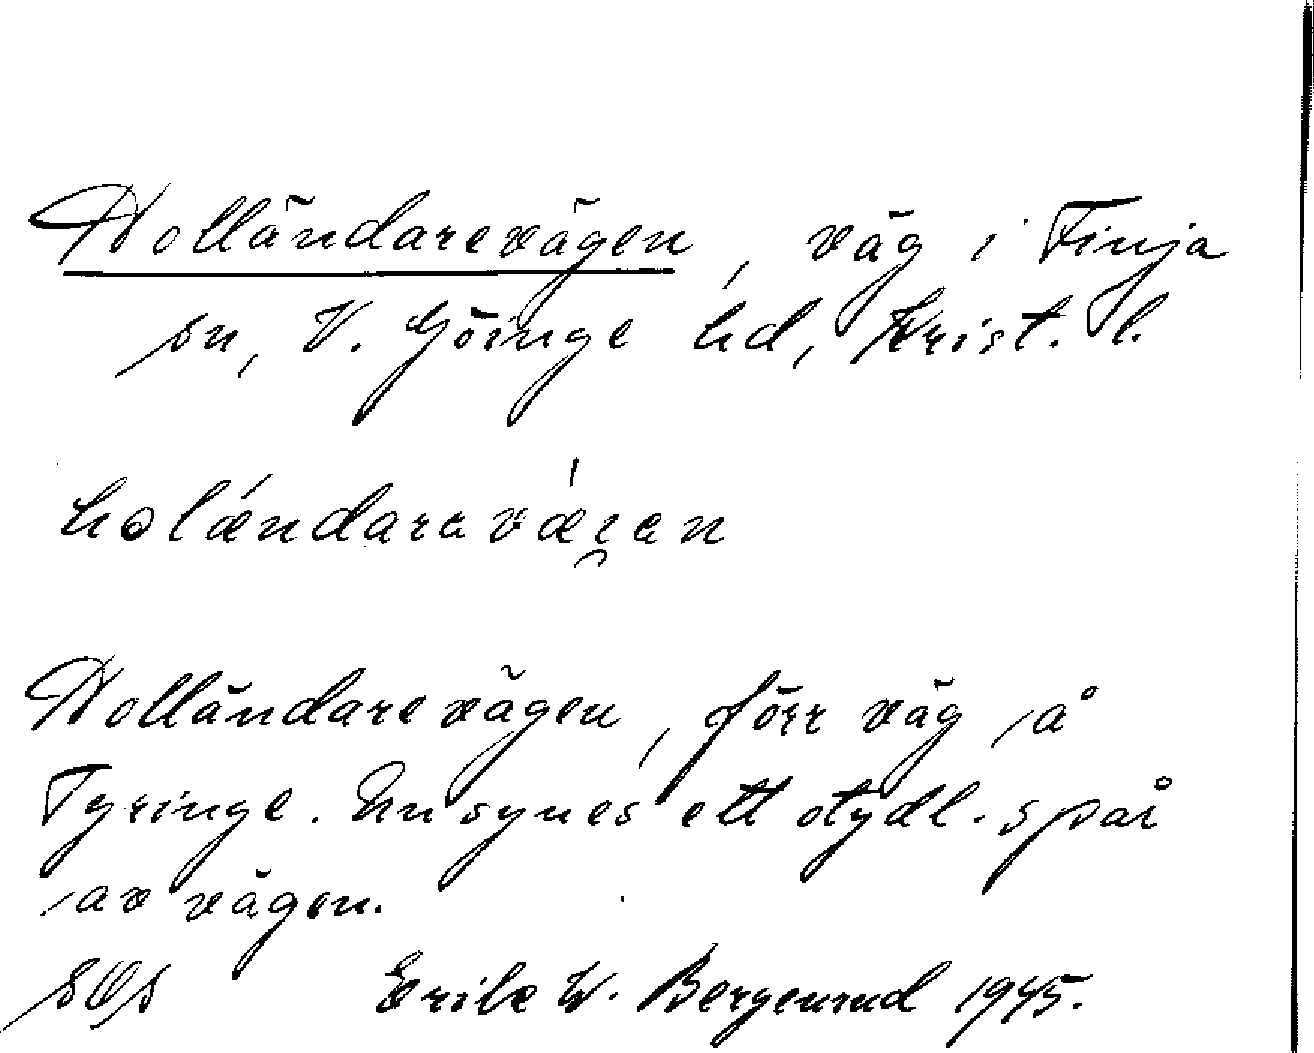 Holländarevägen, väg i Finja
sn, V. Göinge hd, Krist. l.
holǽndaravǽi̯an
Holländarevägen, förr väg å
Tyringe. Nu synes ett otydl. spår
av vägen.
Erik W. Bergenrud 1945.